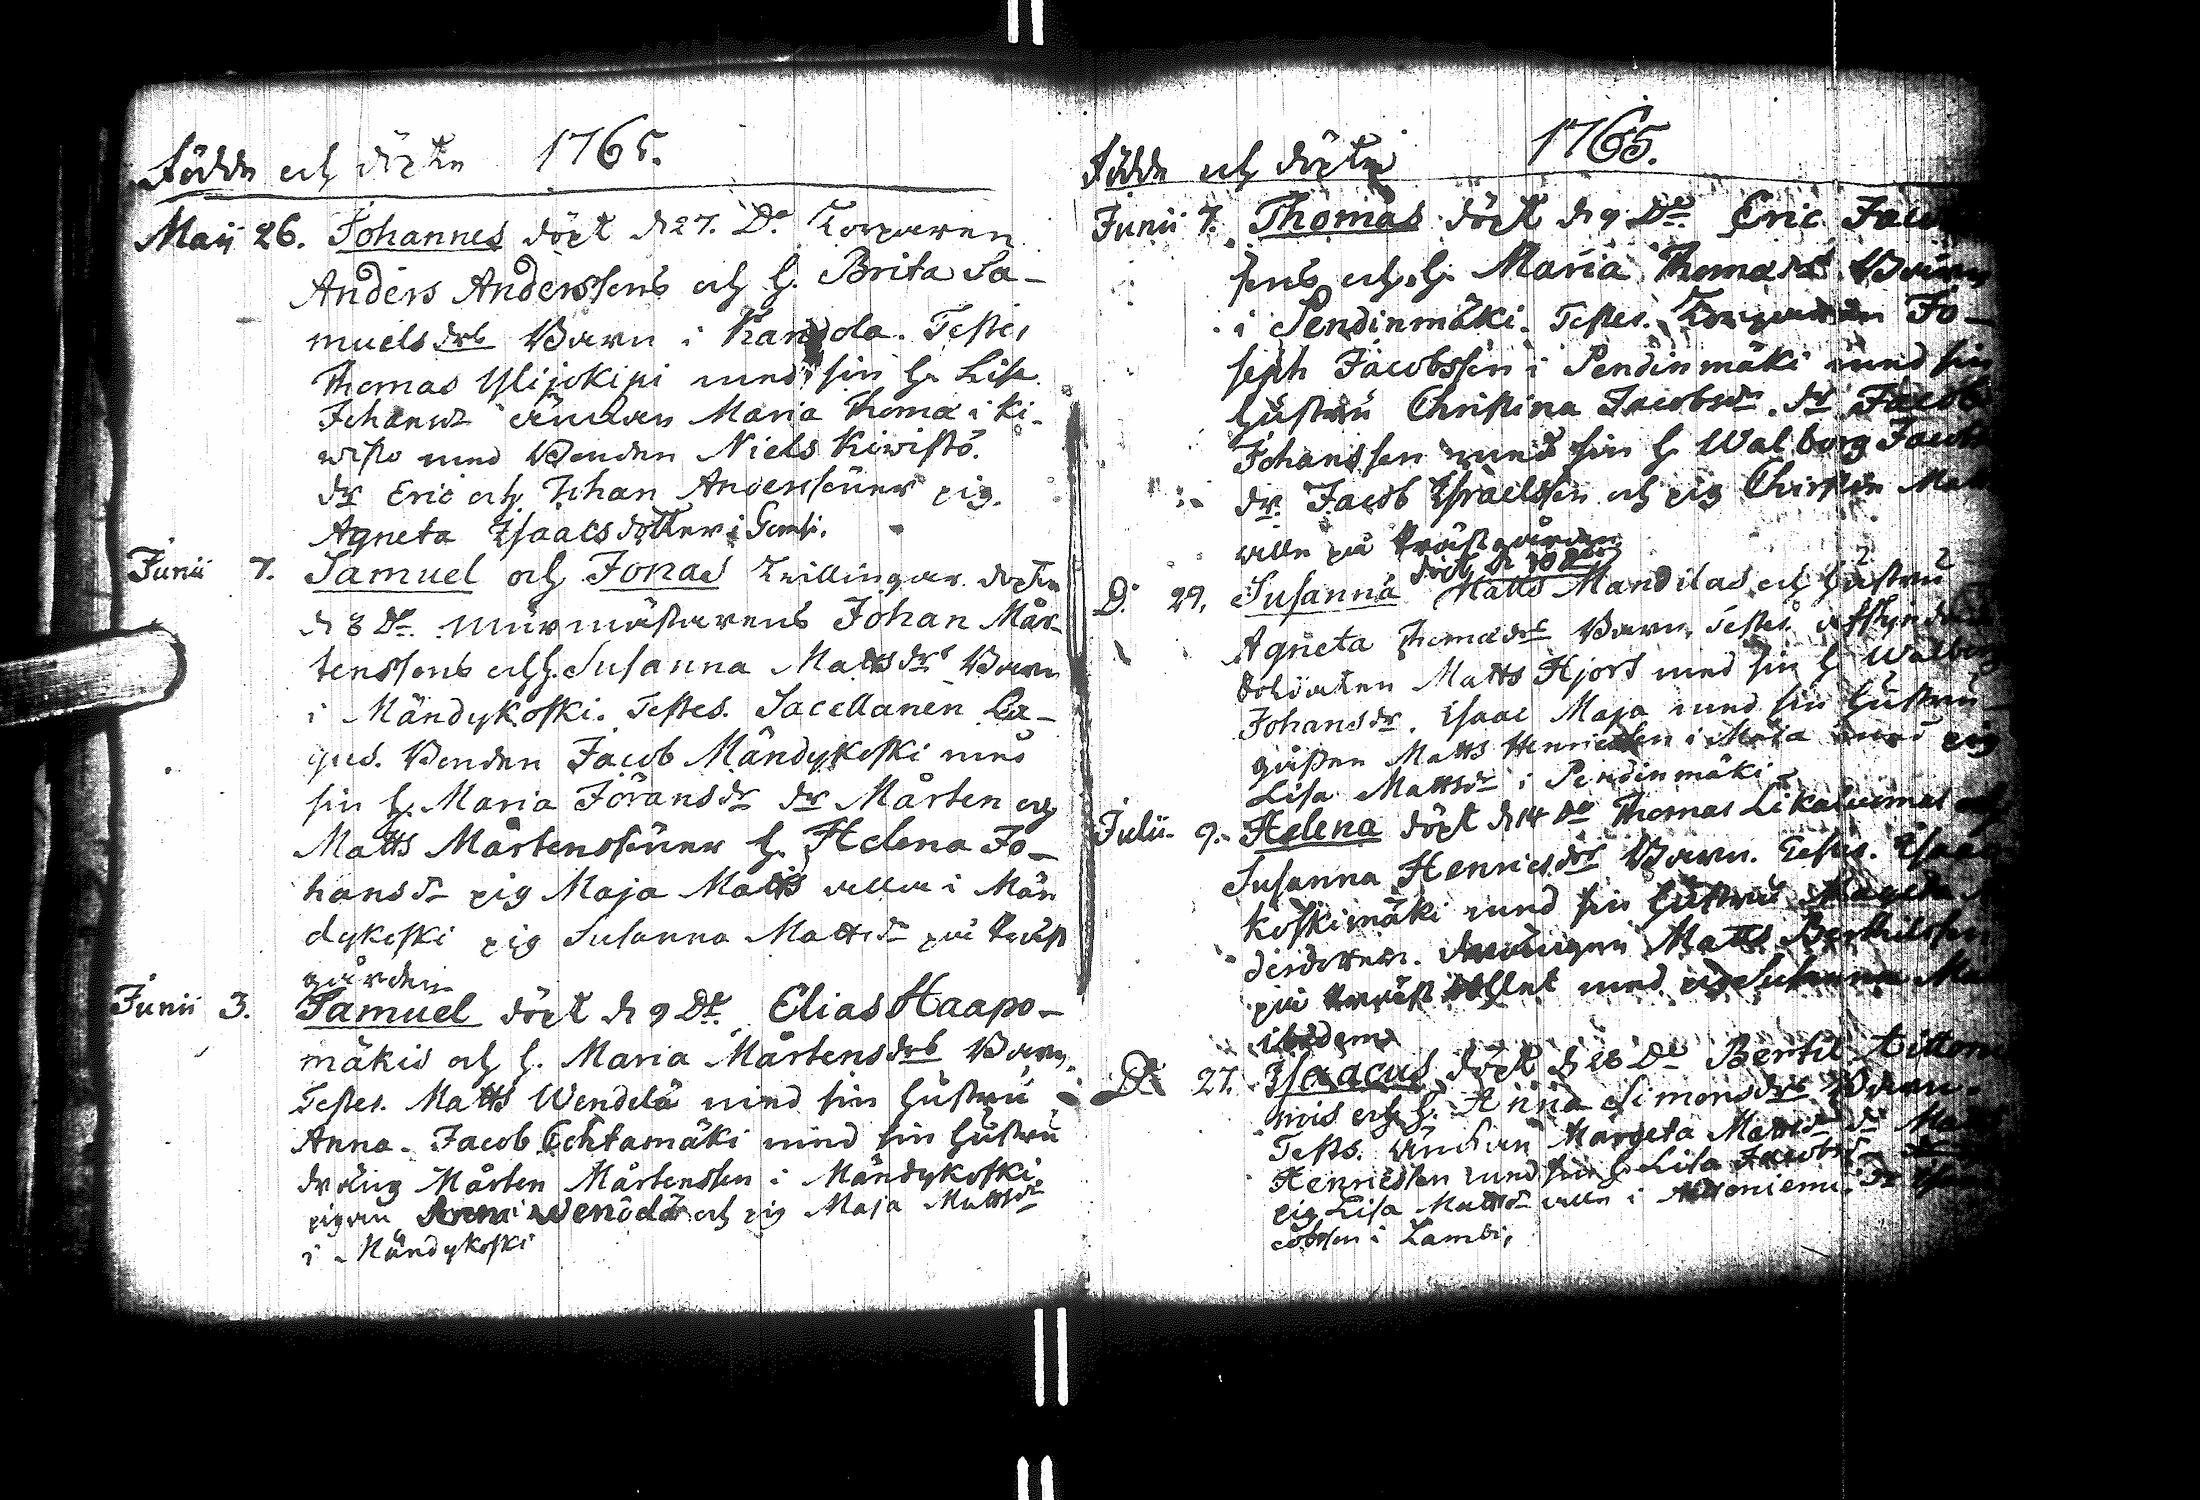 Födde och döpte 1765.
Maij 26. Johannes döpt d 27. Do Torparen
Anders Anderssons och h. Brita Sa-
muels drs Barn i Kangola. Testes
Thomas Ylijokipi med sin h. Lisa
Johansdr änckan Maria Thomæ i Ki-
wistö med Bonden Niels Kiwistö.
dr Eric och Johan Anderssöner pig.
Agneta Isaacsdotter i
Junii 7. Samuel och Jonas Twillingar döpte
d 8 Do. Murmästarens Johan Mår-
tenssons och h. Susanna Matts drs Barn
i Mändykoski. Testes. Sacellanen La-
gus. Bonden Jacob Mändykoski med
sin h. Maria Jöransdr dr Mårten och
Matts Mårtenssöner h. Helena Jo-
hansdr pig Maja Matts alla i Män
dykoski pig Susanna Mattsdr på Präst
gården.
Junii 3. Samuel döpt d 9 Do. Elias Haapo-
mäkis och h. Maria Mårtensdrs Barn.
Testes. Matts Wendelä med sin hustru
Anna. Jacob Lehtamäki med sin hustru
dräng Mårten Mårtensson i Mändykoski
pigan och pig Maja Mattsdr
i Mändykoski
Födde och döpte 1765.
Junii 7. Thomas döpt d 9 Do. Eric Jacob
sons och h. Maria Thomædr Barn
i Pendinmäki. Testes. Torparen Jo-
seph Jacobsson i Pendinmäki med sin
hustru Christina Jacobsdr. dr Jacob
Johansson med sin h. Walborg Jacobs
dr. Jacob Israelsson och pig Christin Matts
alla på Prästgården
döpt d 30
D. 29. Susanna Matts Mandilas och hustru
Agneta Thomædrs Barn. Testes afskjedade
Soldaten Matts Hjort med sin h. Walborg
Johansdr. Isaac Maja med sin hustru
gåssen Matts Henricsson i Maja med pig
Lisa Mattsdr i Pendinmäki
Julii 9. Helena döpt d 14 Do Thomas och
Susanna Henricsdrs Barn. Testes. Isaac
Koskimäki med sin hustru
drängen Matts Berthilsson
på med pig Susanna
ibidem
D. 27. Isaacus döpt d 28 Do Bertil Aittonie
mis och h. Anna Simonsdrs Barn.
Testes. Änckan Margeta Mattsdr dr
Henricsson med sin h. Lisa Jacobsdr
pig Lisa Mattsdr alla i Aittoniemi.
cobsson i Lambi.